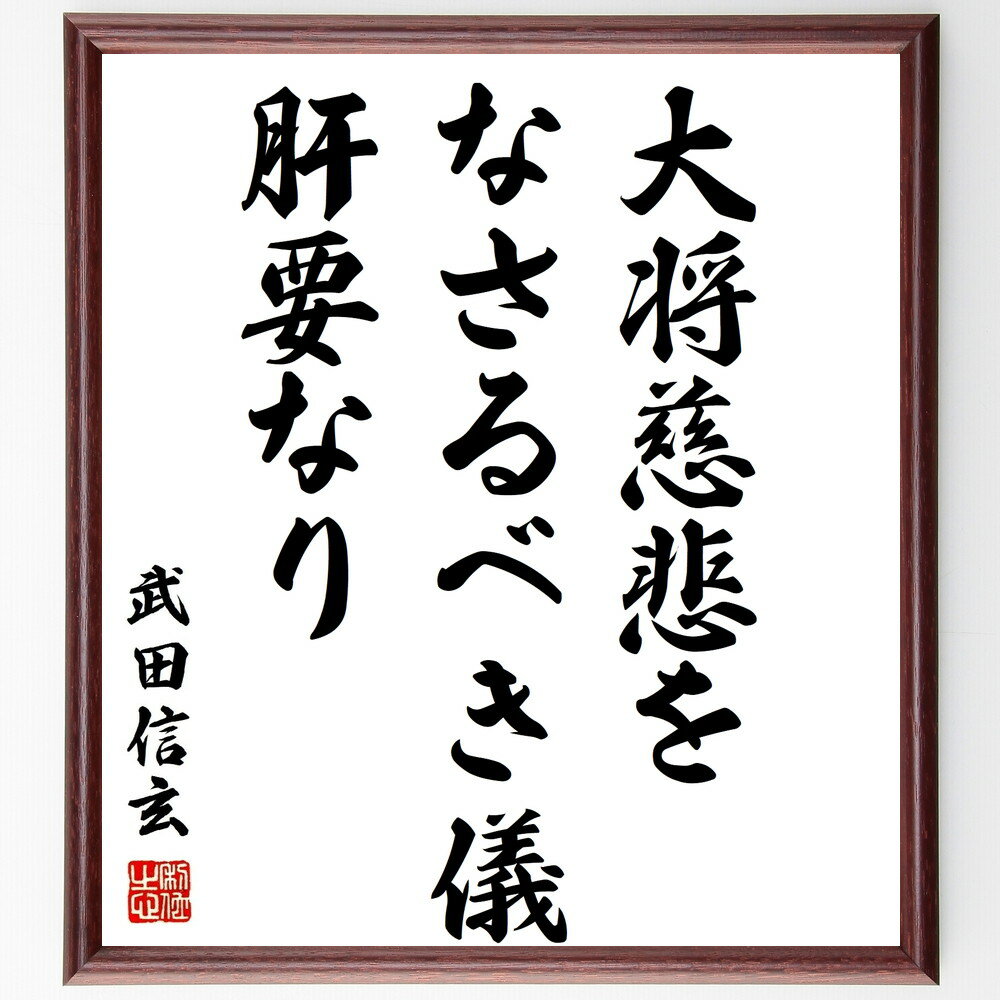 大将慈悲を
なさるべき儀
肝要なり
武田信玄